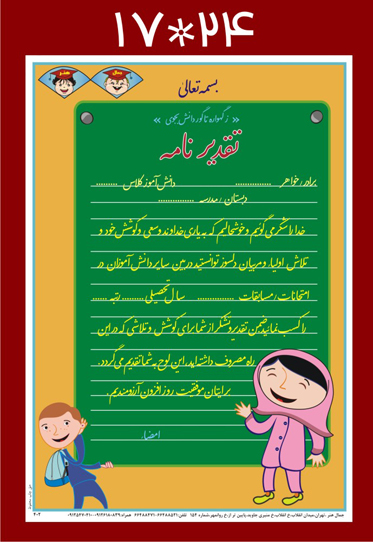 ۱۷*۲۴
هنر سال
بسمه تعالی
« ز گهواره تا گور دانش بجوی »
تقدیر نامه
برادر/خواهر ............... دانش آموز کلاس .........
دبستان / مدرسه ...............
خدا را شکر می گوئیم و خوشحالیم که به یاری خداوند و سعی و کوشش خود و
تلاش اولیاء و مربیان دلسوز توانستید در بین سایر دانش آموزان در
امتحانات / مسابقات ............... سال تحصیلی ......... رتبه ......
را کسب نمائید ضمن تقدیر و تشکر از شما برای کوشش و تلاشی که در این
راه مصروف داشته اید. این لوح به شما تقدیم می گردد.
برایتان موفقیت روز افزون آرزومندیم.
امضاء